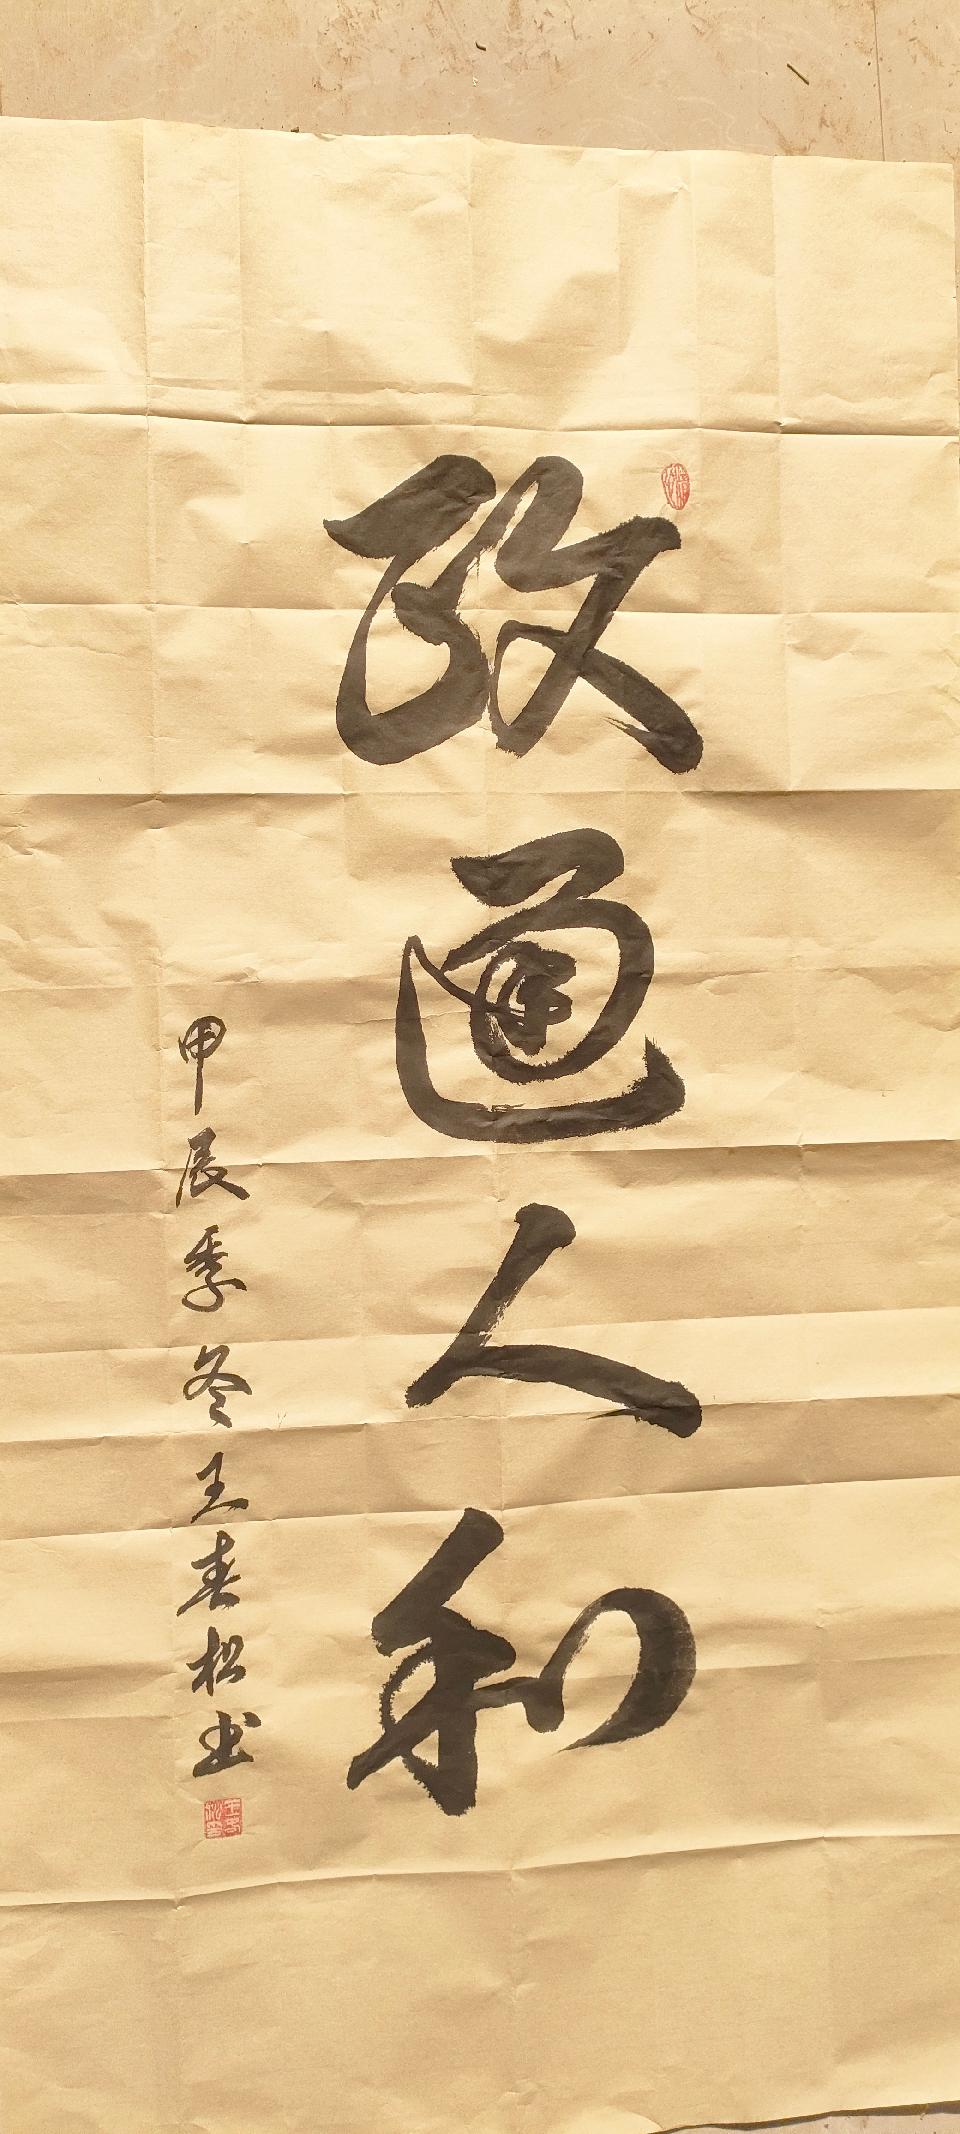 政通人和
甲辰季冬王春松书